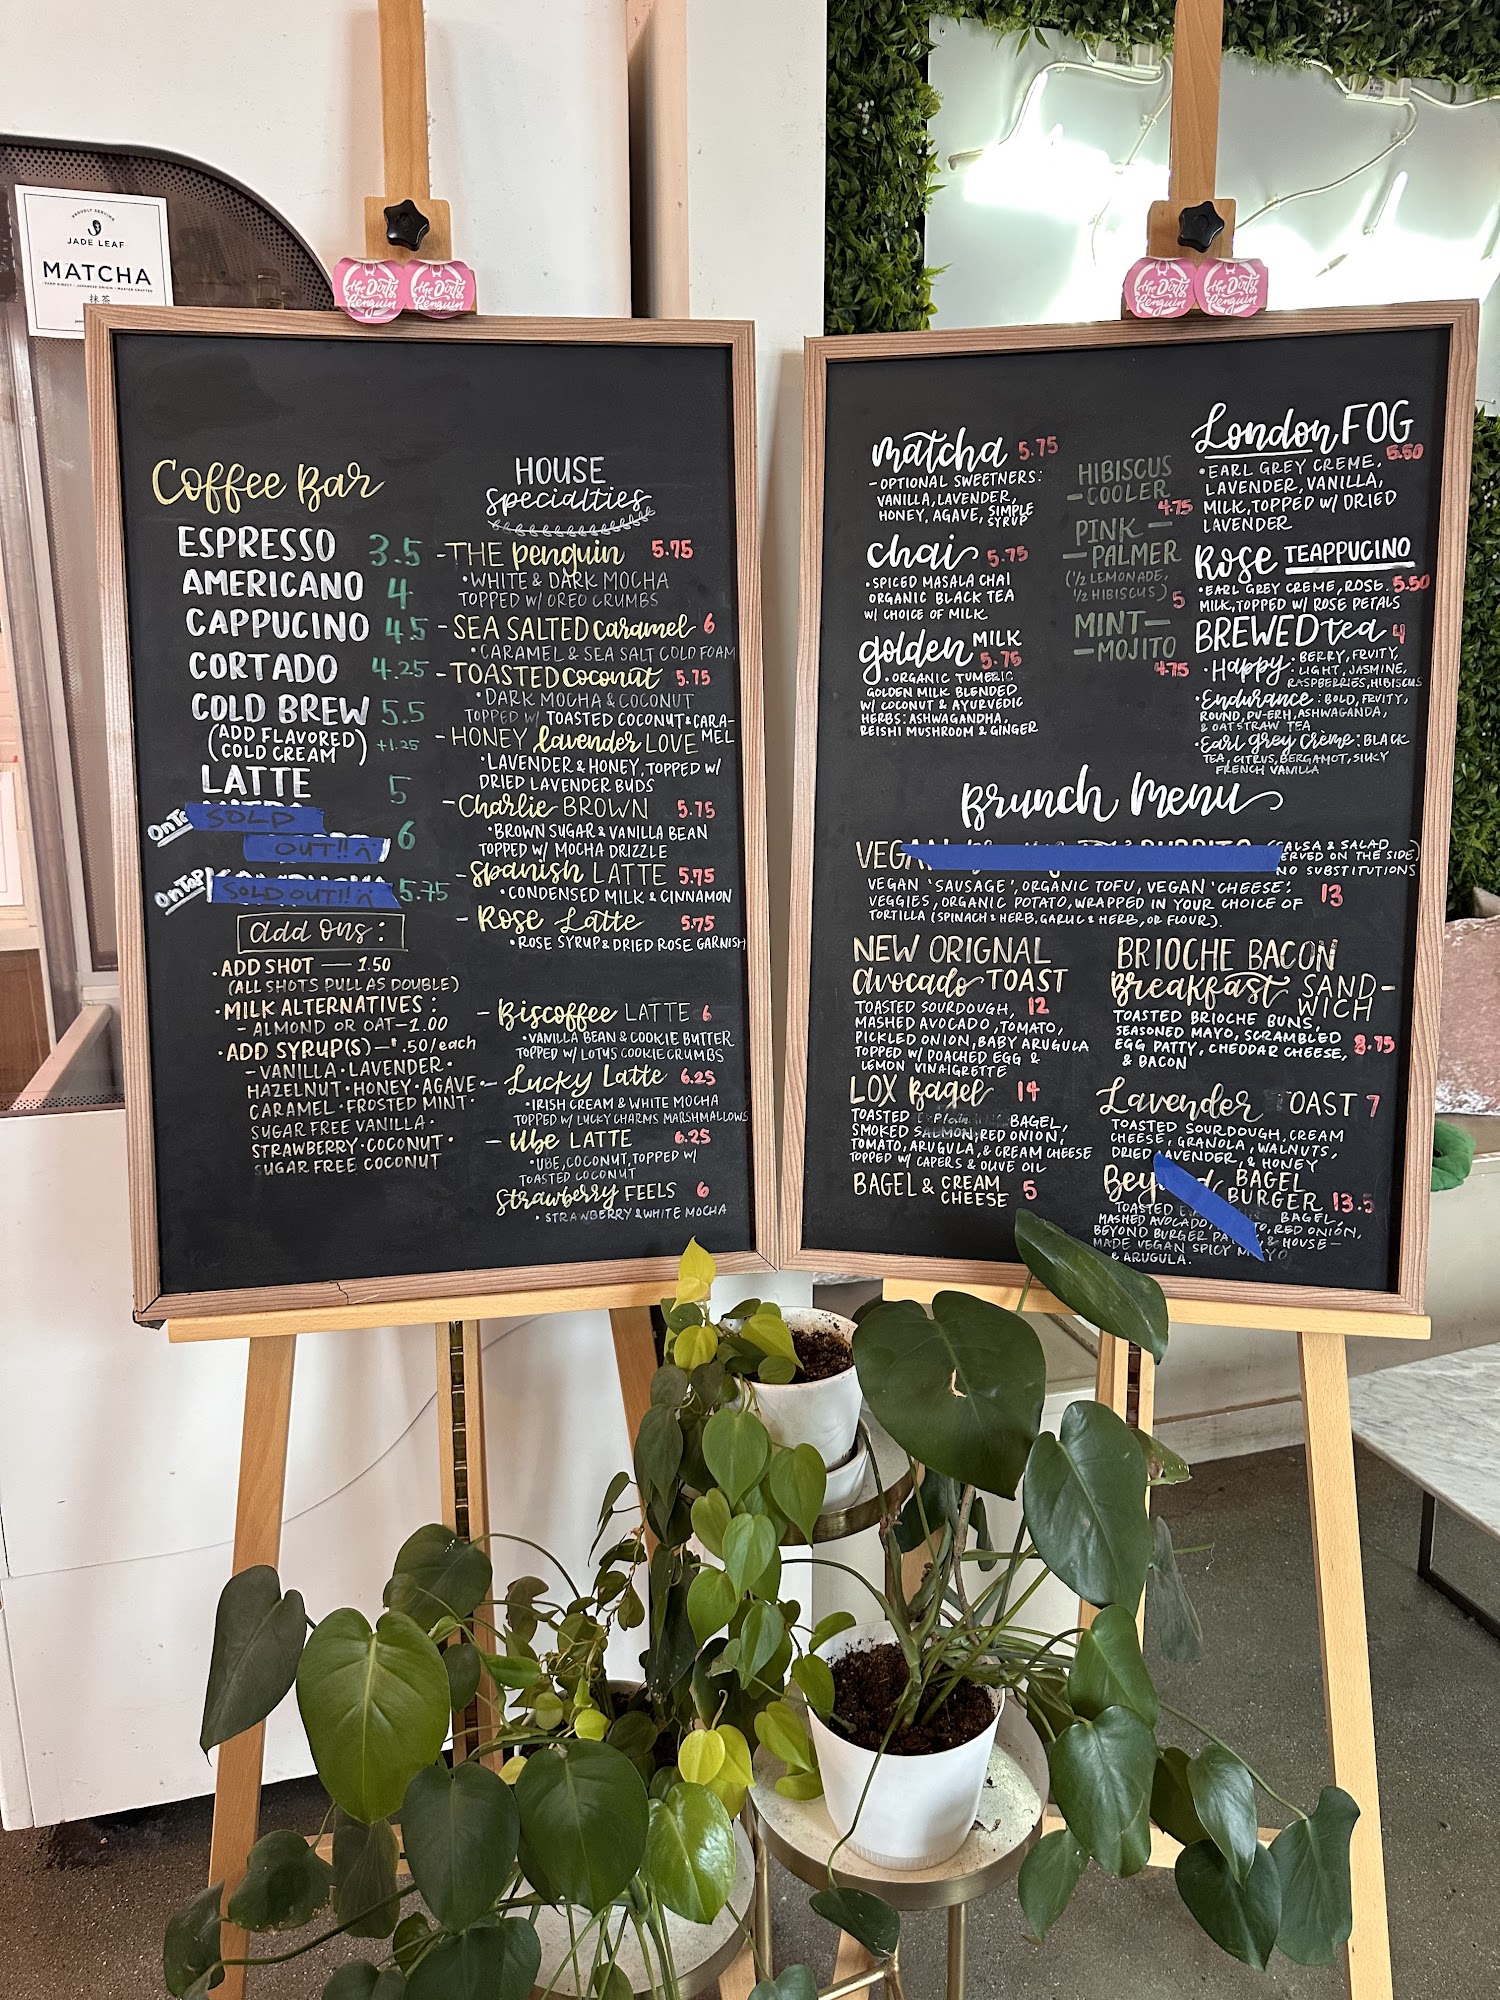 PROUDLY SERVING
JADE LEAF
MATCHA
抹茶
the Dirty Penguin
the Dirty Penguin
the Dirty Penguin
the Dirty Penguin
Coffee Bar
ESPRESSO 3.5
AMERICANO 4
CAPPUCINO 4.5
CORTADO 4.25
COLD BREW 5.5
(ADD FLAVORED COLD CREAM) +1.25
LATTE 5
SOLD
OUT!! 6
OnTap SOLD OUT!! 5.75
add ons:
• ADD SHOT — 1.50
(ALL SHOTS PULL AS DOUBLE)
• MILK ALTERNATIVES:
- ALMOND OR OAT - 1.00
• ADD SYRUP(S) - $.50/each
- VANILLA • LAVENDER •
HAZELNUT • HONEY • AGAVE •
CARAMEL • FROSTED MINT •
SUGAR FREE VANILLA •
STRAWBERRY • COCONUT •
SUGAR FREE COCONUT
HOUSE
specialties
- THE penguin 5.75
• WHITE & DARK MOCHA
TOPPED W/ OREO CRUMBS
- SEA SALTED caramel 6
• CARAMEL & SEA SALT COLD FOAM
- TOASTED coconut 5.75
• DARK MOCHA & COCONUT
TOPPED W/ TOASTED COCONUT & CARA-
MEL
- HONEY lavender LOVE
• LAVENDER & HONEY, TOPPED W/
DRIED LAVENDER BUDS
- Charlie BROWN 5.75
• BROWN SUGAR & VANILLA BEAN
TOPPED W/ MOCHA DRIZZLE
- Spanish LATTE 5.75
• CONDENSED MILK & CINNAMON
- Rose Latte 5.75
• ROSE SYRUP & DRIED ROSE GARNISH
- Biscoffee LATTE 6
• VANILLA BEAN & COOKIE BUTTER
TOPPED W/ LOTUS COOKIE CRUMBS
- Lucky Latte 6.25
• IRISH CREAM & WHITE MOCHA
TOPPED W/ LUCKY CHARMS MARSHMALLOWS
- Ube LATTE 6.25
• UBE, COCONUT, TOPPED W/
TOASTED COCONUT
Strawberry FEELS 6
• STRAWBERRY & WHITE MOCHA
matcha 5.75
- OPTIONAL SWEETNERS:
VANILLA, LAVENDER,
HONEY, AGAVE, SIMPLE
SYRUP
chai 5.75
• SPICED MASALA CHAI
ORGANIC BLACK TEA
W/ CHOICE OF MILK
golden MILK 5.75
• ORGANIC TUMERIC
GOLDEN MILK BLENDED
W/ COCONUT & AYURVEDIC
HERBS: ASHWAGANDHA,
REISHI MUSHROOM & GINGER
HIBISCUS
- COOLER
4.75
PINK —
— PALMER
(1/2 LEMONADE,
1/2 HIBISCUS) 5
MINT —
— MOJITO
4.75
London FOG
5.50
• EARL GREY CREME,
LAVENDER, VANILLA,
MILK, TOPPED W/ DRIED
LAVENDER
Rose TEAPPUCINO
• EARL GREY CREME, ROSE, 5.50
MILK, TOPPED W/ ROSE PETALS
BREWED tea 4
• Happy: BERRY, FRUITY,
LIGHT, JASMINE,
RASPBERRIES, HIBISCUS
• Endurance: BOLD, FRUITY,
ROUND, PU-ERH, ASHWAGANDA,
& OATSTRAW TEA
• Earl Grey Crème: BLACK
TEA, CITRUS, BERGAMOT, SILKY
FRENCH VANILLA
Brunch Menu
VEGAN
SALSA & SALAD
SERVED ON THE SIDE)
NO SUBSTITUTIONS
VEGAN 'SAUSAGE', ORGANIC TOFU, VEGAN 'CHEESE',
VEGGIES, ORGANIC POTATO, WRAPPED IN YOUR CHOICE OF 13
TORTILLA (SPINACH & HERB, GARLIC & HERB, OR FLOUR).
NEW ORIGNAL
avocado TOAST
TOASTED SOURDOUGH, 12
MASHED AVOCADO, TOMATO,
PICKLED ONION, BABY ARUGULA
TOPPED W/ POACHED EGG &
LEMON VINAIGRETTE
LOX Bagel 14
TOASTED Plain BAGEL,
SMOKED SALMON, RED ONION,
TOMATO, ARUGULA, & CREAM CHEESE
TOPPED W/ CAPERS & OLIVE OIL
BAGEL & CREAM
CHEESE 5
BRIOCHE BACON
Breakfast SAND-
WICH
TOASTED BRIOCHE BUNS,
SEASONED MAYO, SCRAMBLED
EGG PATTY, CHEDDAR CHEESE, 8.75
& BACON
Lavender TOAST 7
TOASTED SOURDOUGH, CREAM
CHEESE, GRANOLA, WALNUTS,
DRIED LAVENDER, & HONEY
Beyond BAGEL
BURGER 13.5
TOASTED BAGEL,
MASHED AVOCADO, RED ONION,
BEYOND BURGER & HOUSE-
MADE VEGAN SPICY MAYO
& ARUGULA.